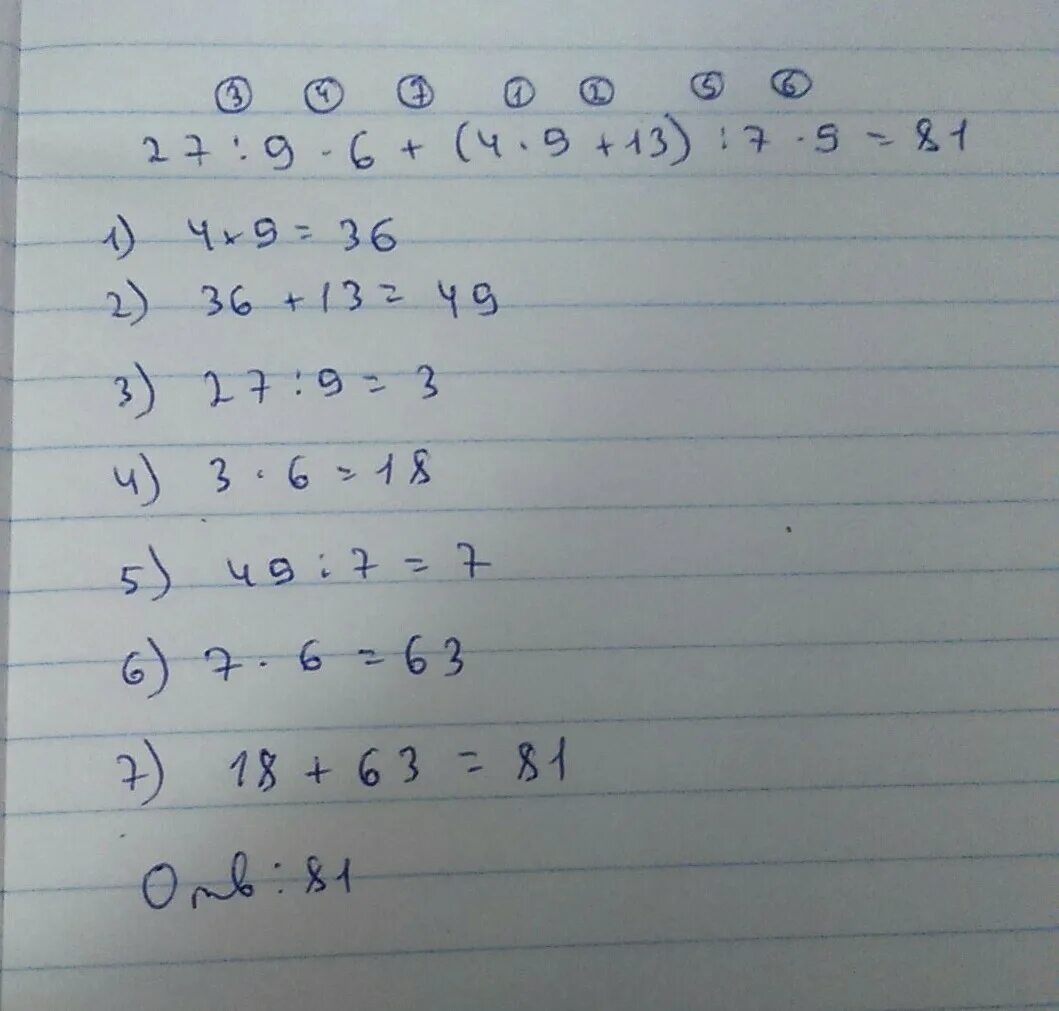 ③ ④ ⑦ ① ② ⑤ ⑥
27 : 9 · 6 + (4 · 9 + 13) : 7 · 9 = 81
1) 4 × 9 = 36
2) 36 + 13 = 49
3) 27 : 9 = 3
4) 3 · 6 = 18
5) 49 : 7 = 7
6) 7 · 6 = 63
7) 18 + 63 = 81
Отв : 81